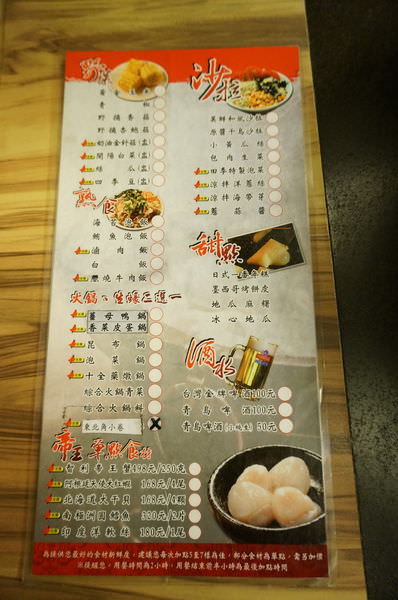 青椒
野摘香菇
野摘杏鮑菇
奶油金針菇(盅)
開陽白菜(盅)
絲瓜(盅)
四季豆(盅)
熟食
鮪魚泡飯
滷肉飯
白飯
醬燒牛肉飯
火鍋、生蠔三選一
薑母鴨鍋
香菜皮蛋鍋
昆布鍋
泡菜鍋
十全藥燉鍋
綜合火鍋青菜
綜合火鍋料
東北角小卷
帝王單點食材
智利帝王蟹498元/250克
阿根廷天使大紅蝦 168元/4尾
北海道大干貝 168元/4顆
南極洲圓鱈魚 320元/2片
印度洋軟絲 180元/1尾
沙拉
美鮮和風沙拉
原醬千島沙拉
小黃瓜絲
包肉生菜
四季特製泡菜
涼拌洋蔥絲
涼拌海帶芽
蔥蒜醬
甜點
日式一番年糕
墨西哥烤餅皮
地瓜麻糬
冰心地瓜
酒水
台灣金牌啤酒100元
青島啤酒100元
青島啤酒(小瓶裝) 50元
為提供您最好的食材新鮮度,建議您每次加點5至7樣為佳,部分食材為單點,需另加價
※提醒您,用餐時間為2小時,用餐結束前半小時為最後加點時間